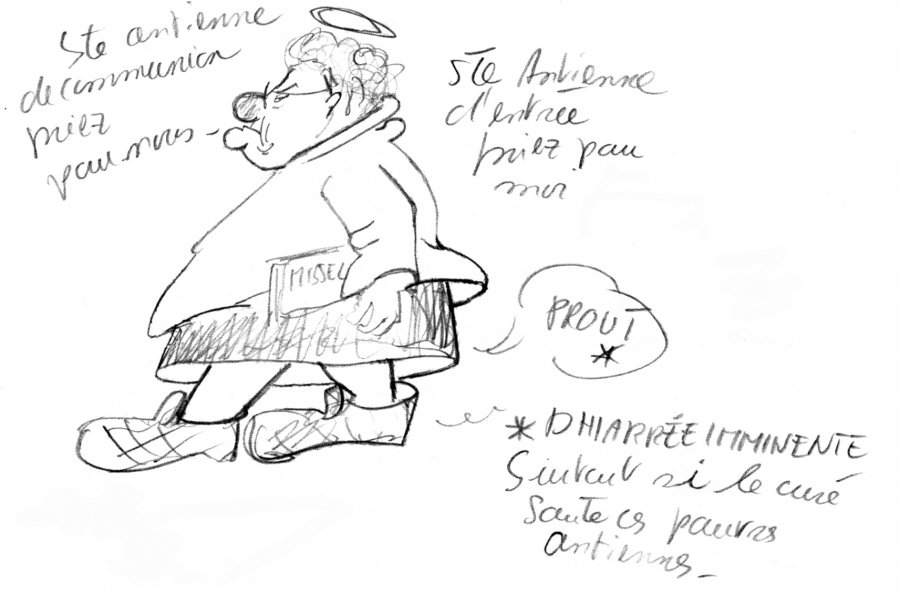 Ste antienne
de communion
priez
pour nous -
Ste Antienne
d'entrée
priez pour
moi
MISSEL
PROUT
*
* DHIARRÉE IMMINENTE
Surtout si le curé
saute ces pauvres
antiennes -